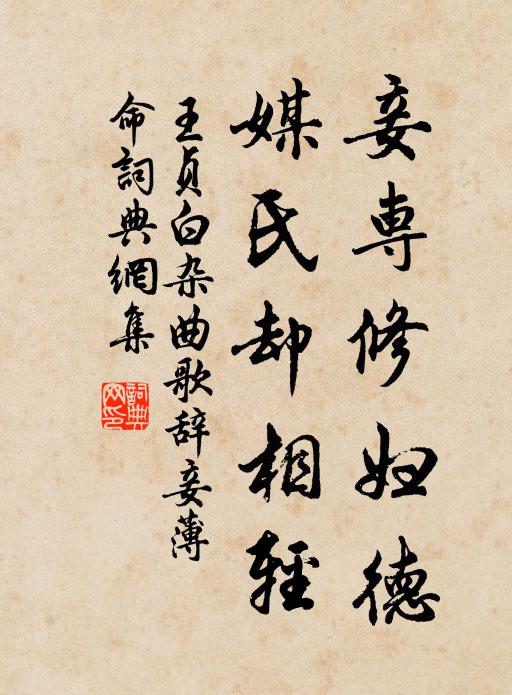 妾専修妇德
媒氏却相轻
王贞白杂曲歌辞妾薄
命詞典網集
詞典
网印